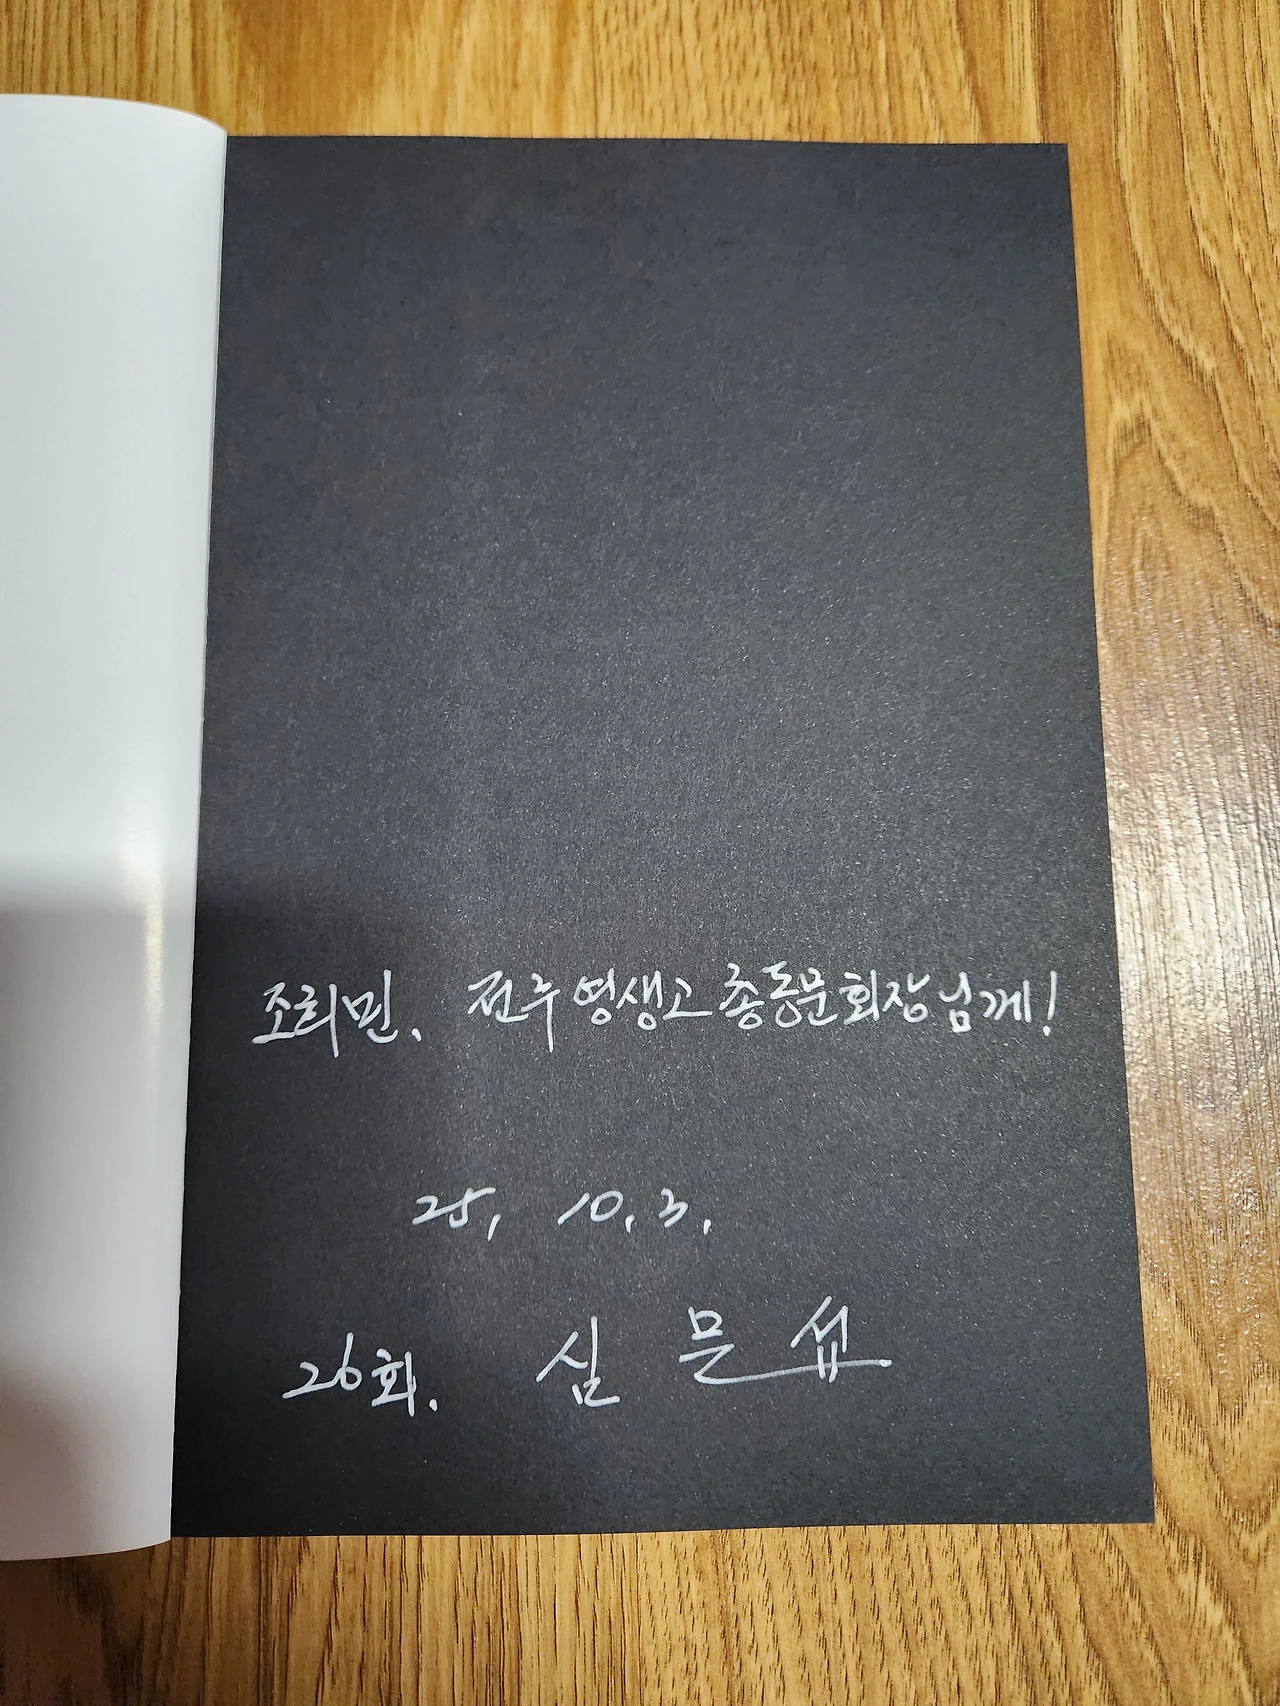 조희민. 전주영생고 총동문회장님께!
25, 10.3.
26회. 심문섭